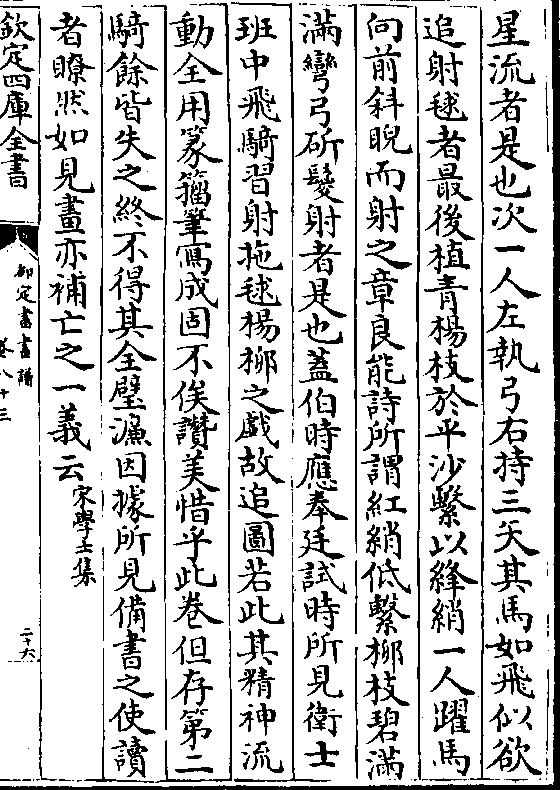 星流者是也次一人左執弓右持三矢其馬如飛似欲
追射毬者最後植青楊枝於平沙繫以絳綃一人躍馬
向前斜睨而射之章良能詩所謂紅綃低繫柳枝碧滿
滿彎弓斫鬉射者是也蓋伯時應奉廷試時所見衛士
班中飛騎習射拖毬楊柳之戲故追圖若此其精神流
動全用篆籀筆寫成固不俟讚美惜乎此卷但存第二
騎餘皆失之終不得其全璧濂因據所見備書之使讀
者瞭然如見畫亦補亡之一義云宋學士集
欽定四庫全書
御定書畫譜
卷八十三
二十六